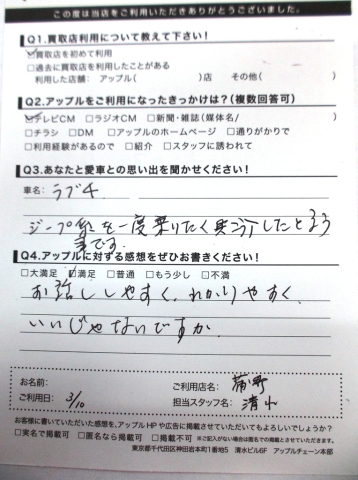 この度は当店をご利用いただきありがとうございました。
Q1.買取店利用について教えて下さい！
☑買取店を初めて利用
□過去に買取店を利用したことがある
利用した店舗： アップル( )店 その他( )
Q2.アップルをご利用になったきっかけは？(複数回答可)
☑テレビCM □ラジオCM □新聞・雑誌(媒体名/ )
□チラシ □DM □アップルのホームページ □通りがかりで
□利用経験があるので □紹介 □スタッフに誘われて
Q3.あなたと愛車との思い出を聞かせください！
車名： ラブ4
を一度乗りたく
車です。
Q4.アップルに対する感想をぜひお書きください！
□大満足 ☑満足 □普通 □もう少し □不満
お話ししやすく、わかりやすく、
いいじゃないですか
お名前：
ご利用店名：
ご利用日： 3/10
担当スタッフ名： 清水
お客様に書いていただいた感想を、アップルHPや広告に掲載させていただいてもよろしいでしょうか？
□実名で掲載可 □匿名なら掲載可 □掲載不可 ※ご記入がない場合は匿名での掲載とさせていただきます。
東京都千代田区神田岩本町1番地5 清水ビル6F アップルチェーン本部